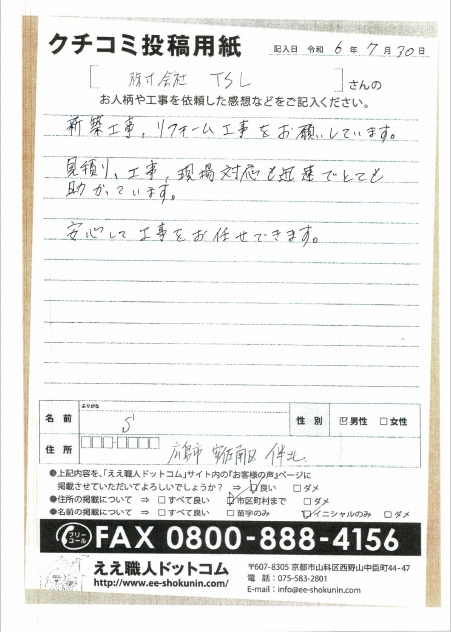 クチコミ投稿用紙
記入日 令和 6 年 7 月 30 日
[ 株式会社 TSL ] さんの
お人柄や工事を依頼した感想などをご記入ください。
新築工事、リフォーム工事をお願いしています。
見積り、工事、現場対応も迅速でとても
助かっています。
安心して工事をお任せできます。
ふりがな
名 前 S 性 別 ☑男性 □女性
住 所 広島市安佐南区伴北
●上記内容を、「ええ職人ドットコム」サイト内の『お客様の声』ページに
掲載させていただいてよろしいでしょうか? ⇒ ☑良い □ダメ
●住所の掲載について ⇒ □すべて良い ☑市区町村まで □ダメ
●名前の掲載について ⇒ □すべて良い □苗字のみ ☑イニシャルのみ □ダメ
フリーコール FAX 0800-888-4156
ええ職人ドットコム
http://www.ee-shokunin.com/
〒607-8305 京都市山科区西野山中臣町44-47
電話:075-583-2801
E-mail:info@ee-shokunin.com